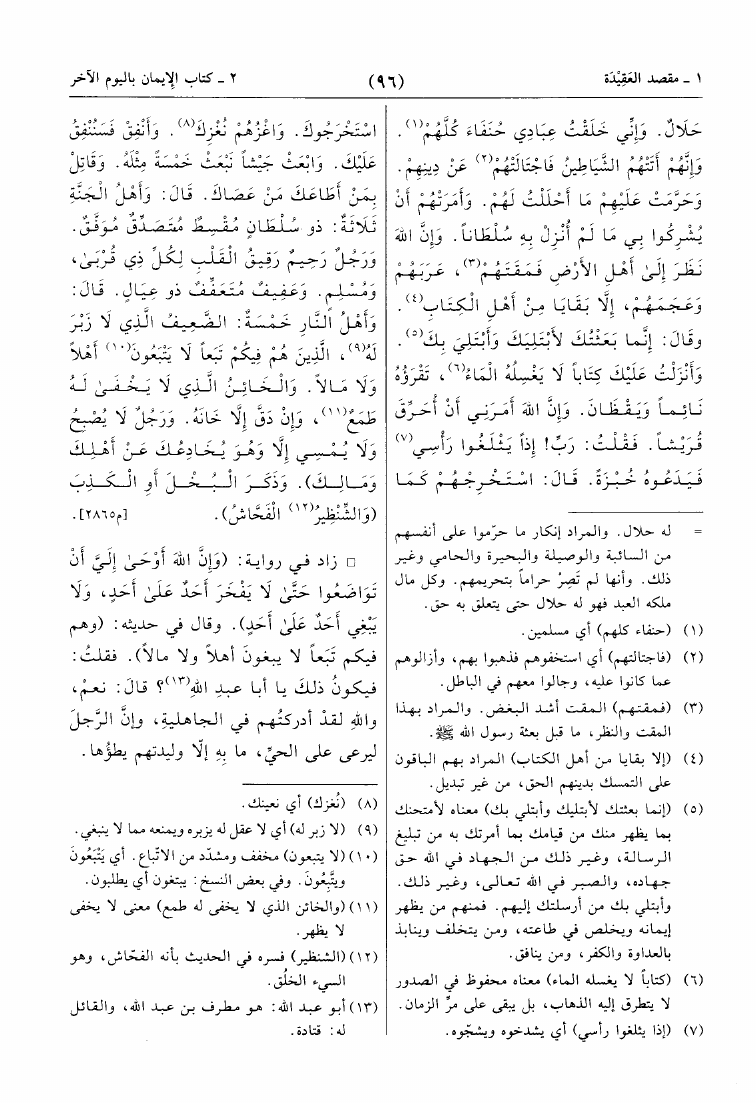 ١ ـ مقصد العَقِيْدَة
(٩٦)
٢ ـ كتاب الإيمان باليوم الآخر
حَلَالٌ. وَإِنِّي خَلَقْتُ عِبَادِي حُنَفَاءَ كُلَّهُمْ(١).
وَإِنَّهُمْ أَتَتْهُمُ الشَّيَاطِينُ فَاجْتَالَتْهُمْ(٢) عَنْ دِينِهِمْ.
وَحَرَّمَتْ عَلَيْهِمْ مَا أَحْلَلْتُ لَهُمْ. وَأَمَرَتْهُمْ أَنْ
يُشْرِكُوا بِي مَا لَمْ أُنْزِلْ بِهِ سُلْطَاناً. وَإِنَّ اللهَ
نَظَرَ إِلَىٰ أَهْلِ الأَرْضِ فَمَقَتَهُمْ(٣)، عَرَبَهُمْ
وَعَجَمَهُمْ، إِلَّا بَقَايَا مِنْ أَهْلِ الْكِتَابِ(٤).
وقَالَ: إِنَّمَا بَعَثْتُكَ لأَبْتَلِيَكَ وَأَبْتَلِيَ بِكَ(٥).
وَأَنْزَلْتُ عَلَيْكَ كِتَاباً لَا يَغْسِلُهُ الْمَاءُ(٦)، تَقْرَؤُهُ
نَائِماً وَيَقْظَانَ. وَإِنَّ اللهَ أَمَرَنِي أَنْ أُحَرِّقَ
قُرَيْشاً. فَقُلْتُ: رَبِّ! إِذاً يَثْلَغُوا رَأْسِي(٧)
فَيَدَعُوهُ خُبْزَةً. قَالَ: اسْتَخْرِجْهُمْ كَمَا
= له حلال. والمراد إنكار ما حرّموا على أنفسهم
من السائبة والوصيلة والبحيرة والحامي وغير
ذلك. وأنها لم تَصِرْ حراماً بتحريمهم. وكل مال
ملكه العبد فهو له حلال حتى يتعلق به حق.
(١) (حنفاء كلهم) أي مسلمين.
(٢) (فاجتالتهم) أي استخفوهم فذهبوا بهم، وأزالوهم
عما كانوا عليه، وجالوا معهم في الباطل.
(٣) (فمقتهم) المقت أشد البغض. والمراد بهذا
المقت والنظر، ما قبل بعثة رسول الله ﷺ.
(٤) (إلا بقايا من أهل الكتاب) المراد بهم الباقون
على التمسك بدينهم الحق، من غير تبديل.
(٥) (إنما بعثتك لأبتليك وأبتلي بك) معناه لأمتحنك
بما يظهر منك من قيامك بما أمرتك به من تبليغ
الرسالة، وغير ذلك من الجهاد في الله حق
جهاده، والصبر في الله تعالى، وغير ذلك.
وأبتلي بك من أرسلتك إليهم. فمنهم من يظهر
إيمانه ويخلص في طاعته، ومن يتخلف وينابذ
بالعداوة والكفر، ومن ينافق.
(٦) (كتاباً لا يغسله الماء) معناه محفوظ في الصدور
لا يتطرق إليه الذهاب، بل يبقى على مرِّ الزمان.
(٧) (إذا يثلغوا رأسي) أي يشدخوه ويشجّوه.
اسْتَخْرَجُوكَ. وَاغْزُهُمْ نُغْزِكَ(٨). وَأَنْفِقْ فَسَنُنْفِقُ
عَلَيْكَ. وَابْعَثْ جَيْشاً نَبْعَثْ خَمْسَةً مِثْلَهُ. وَقَاتِلْ
بِمَنْ أَطَاعَكَ مَنْ عَصَاكَ. قَالَ: وَأَهْلُ الْجَنَّةِ
ثَلَاثَةٌ: ذو سُلْطَانٍ مُقْسِطٌ مُتَصَدِّقٌ مُوَفَّقٌ.
وَرَجُلٌ رَحِيمٌ رَقِيقُ الْقَلْبِ لِكُلِّ ذِي قُرْبَىٰ،
وَمُسْلِمٍ. وَعَفِيفٌ مُتَعَفِّفٌ ذو عِيَالٍ. قَالَ:
وَأَهْلُ النَّارِ خَمْسَةٌ: الضَّعِيفُ الَّذِي لَا زَبْرَ
لَهُ(٩)، الَّذِينَ هُمْ فِيكُمْ تَبَعاً لَا يَتْبَعُونَ(١٠) أَهْلاً
وَلَا مَالاً. وَالْخَائِنُ الَّذِي لَا يَخْفَىٰ لَهُ
طَمَعٌ(١١)، وَإِنْ دَقَّ إِلَّا خَانَهُ. وَرَجُلٌ لَا يُصْبِحُ
وَلَا يُمْسِي إِلَّا وَهُوَ يُخَادِعُكَ عَنْ أَهْلِكَ
وَمَالِكَ). وَذَكَرَ الْبُخْلَ أَوِ الْكَذِبَ
(وَالشِّنْظِيرُ(١٢) الْفَحَّاشُ). [م٢٨٦٥].
□ زاد في رواية: (وَإِنَّ اللهَ أَوْحَىٰ إِلَيَّ أَنْ
تَوَاضَعُوا حَتَّىٰ لَا يَفْخَرَ أَحَدٌ عَلَىٰ أَحَدٍ، وَلَا
يَبْغِي أَحَدٌ عَلَىٰ أَحَدٍ). وقال في حديثه: (وهم
فيكم تَبَعاً لا يبغون أهلاً ولا مالاً). فقلتُ:
فيكونُ ذلكَ يا أبا عبدِ اللهِ(١٣)؟ قالَ: نعمْ،
واللهِ لقدْ أدركتُهم في الجاهليةِ، وإنَّ الرَّجلَ
ليرعى على الحيِّ، ما بِهِ إلّا وليدتهم يطؤُها.
(٨) (نُغزك) أي نعينك.
(٩) (لا زبر له) أي لا عقل له يزبره ويمنعه مما لا ينبغي.
(١٠) (لا يتبعون) مخفف ومشدّد من الاتّباع. أي يَتْبَعُونَ
ويتَّبِعُونَ. وفي بعض النسخ: يبتغون أي يطلبون.
(١١) (والخائن الذي لا يخفى له طمع) معنى لا يخفى
لا يظهر.
(١٢) (الشنظير) فسره في الحديث بأنه الفحّاش، وهو
السيء الخلُق.
(١٣) أبو عبد الله: هو مطرف بن عبد الله، والقائل
له: قتادة.